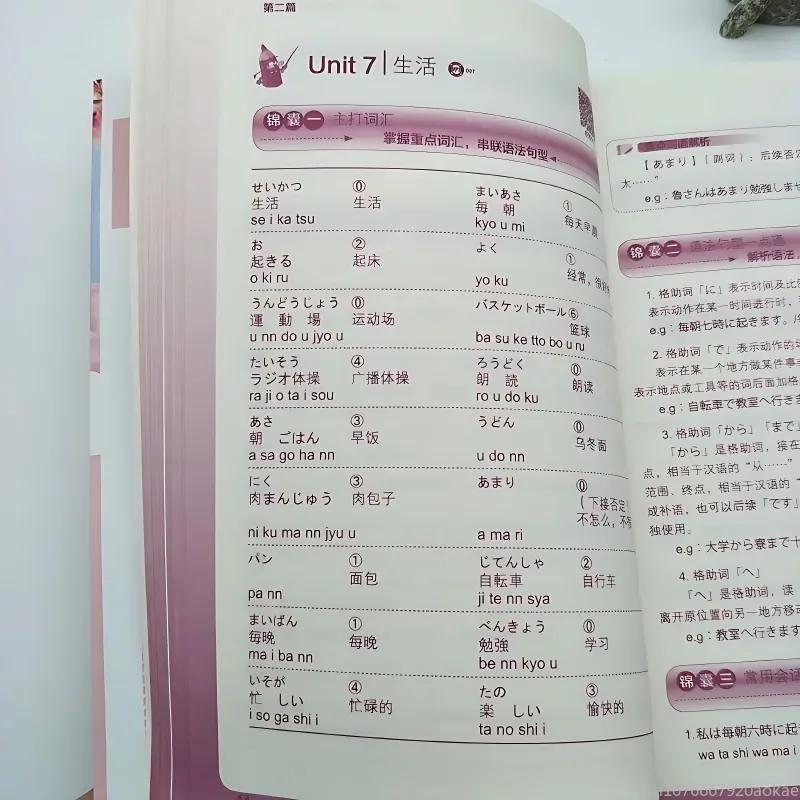 第二篇
Unit 7 | 生活 007
锦囊一 主打词汇
掌握重点词汇，串联语法句型
せいかつ ⓪
生活 生活
se i ka tsu
お ②
起きる 起床
o ki ru
うんどうじょう ⓪
運 動 場 运动场
u nn do u jyo u
たいそう ④
ラジオ体操 广播体操
ra ji o ta i sou
あさ ③
朝 ごはん 早饭
a sa go ha nn
にく ③
肉まんじゅう 肉包子
ni ku ma nn jyu u
パン ①
面包
pa nn
まいばん ①
毎晩 每晚
ma i ba nn
いそが ④
忙 しい 忙碌的
i so ga shi i
まいあさ ①
毎 朝 每天早晨
kyo u mi
よく ①
经常，很
yo ku
バスケットボール ⑥
篮球
ba su ke tto bo u ru
ろうどく ⓪
朗 読 朗读
ro u do ku
うどん ⓪
乌冬面
u do nn
あまり ⓪
（下接否定）
不怎么，不
a ma ri
じてんしゃ ②
自転車 自行车
ji te nn sya
べんきょう ⓪
勉強 学习
be nn kyo u
たの ③
楽 しい 愉快的
ta no shi i
重点词语解析
【あまり】（副词）：后续否定
太……”
e.g：魯さんはあまり勉強しませ
锦囊二 语法句型一点通
解析语法
1. 格助词「に」表示时间及比
表示动作在某一时间进行时，
e.g：毎朝七時に起きます。/
2. 格助词「で」表示动作的
表示在某一个地方做某件事
表示地点或工具等的词后面加格
e.g：自転車で教室へ行きま
3. 格助词「から」「まで」
「から」是格助词，接在
点，相当于汉语的“从……”
范围、终点，相当于汉语的“
成补语，也可以后续「です」
独使用。
e.g：大学から寮まで十
4. 格助词「へ」
「へ」是格助词，读
离开原位置向另一地方移动
e.g：教室へ行きます
锦囊三 常用会话
1.私は毎朝六時に起
wa ta shi wa ma i